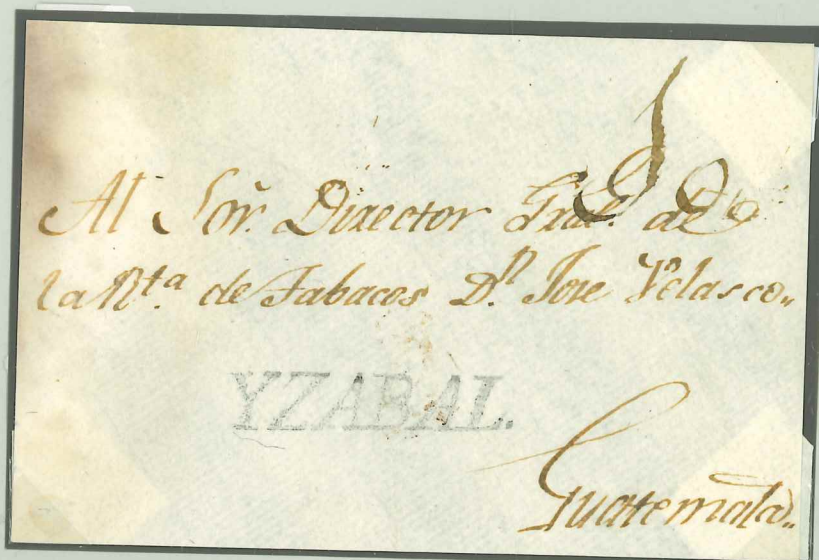 Al Sor. Director Gral. de
la Rta. de Tabacos Dn. Jose Velasco
YZABAL.
Guatemala